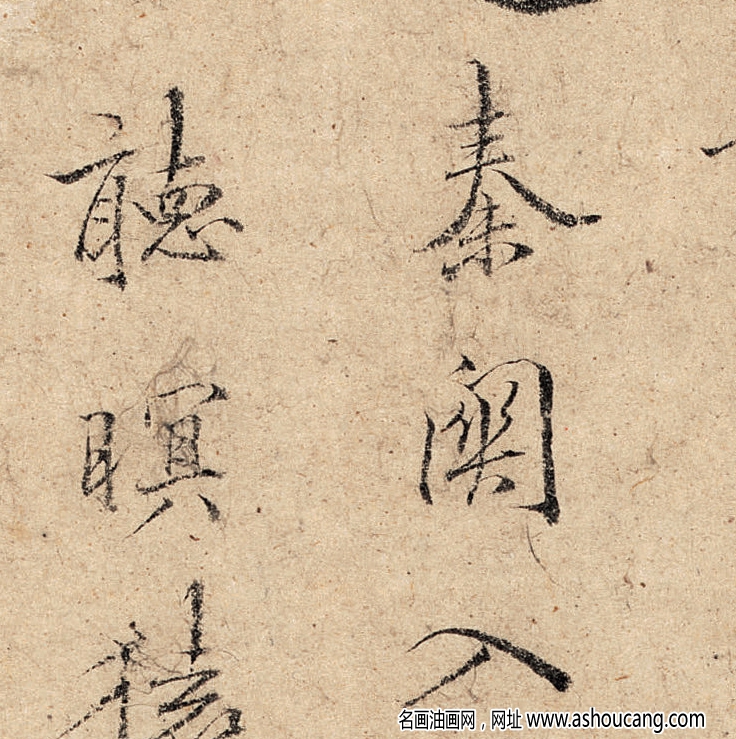 秦關入
聽暝猿
名画油画网，网址 www.ashoucang.com